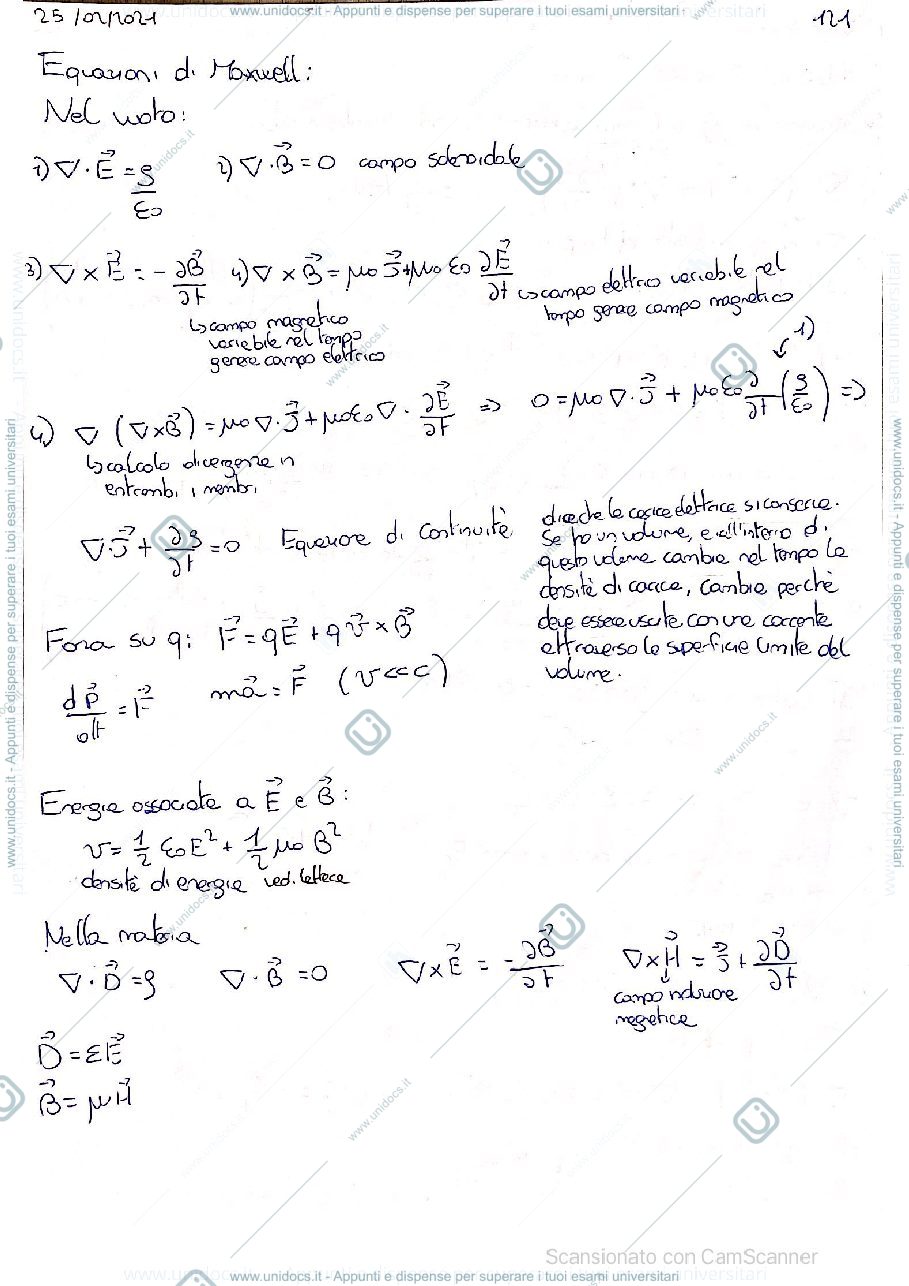 www.unidocs.it - Appunti e dispense per superare i tuoi esami universitari
25/02/2021
121
Equazioni di Maxwell:
Nel vuoto:
1) ∇·E⃗ = ρ/ε₀   2) ∇·B⃗ = 0 campo solenoidale
3) ∇×E⃗ = -∂B⃗/∂t   4) ∇×B⃗ = μ₀J⃗ + μ₀ε₀ ∂E⃗/∂t
↳ campo elettrico variabile nel
tempo genera campo magnetico
↳ campo magnetico
variabile nel tempo
genera campo elettrico
1)
4) ∇(∇×B⃗) = μ₀∇·J⃗ + μ₀ε₀∇·∂E⃗/∂t => 0 = μ₀∇·J⃗ + μ₀ε₀ ∂/∂t(ρ/ε₀) =>
↳ calcolo divergenza in
entrambi i membri
∇·J⃗ + ∂ρ/∂t = 0 Equazione di continuità
dice che la carica elettrica si conserva.
Se ho un volume, e all'interno di
questo volume cambia nel tempo la
densità di carica, cambia perchè
deve essere uscita con una corrente
attraverso la superficie limite del
volume.
Forza su q: F⃗ = qE⃗ + qv⃗×B⃗
dP⃗/dt = F⃗   ma⃗ = F⃗ (v<<c)
Energia associata a E⃗ e B⃗:
v = 1/2 ε₀E² + 1/2 μ₀ B²
densità di energia ved. lettera
Nella materia
∇·D⃗ = ρ   ∇·B⃗ = 0   ∇×E⃗ = -∂B⃗/∂t   ∇×H⃗ = J⃗ + ∂D⃗/∂t
campo induzione
magnetica
D⃗ = εE⃗
B⃗ = μH⃗
Scansionato con CamScanner
www.unidocs.it - Appunti e dispense per superare i tuoi esami universitari